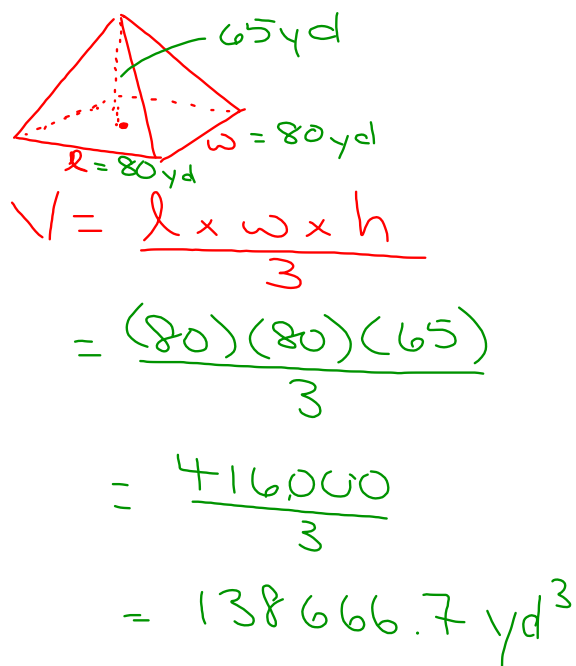 65yd
w = 80yd
l = 80yd
V = l x w x h
3
= (80)(80)(65)
3
= 416000
3
= 138666.7 yd³